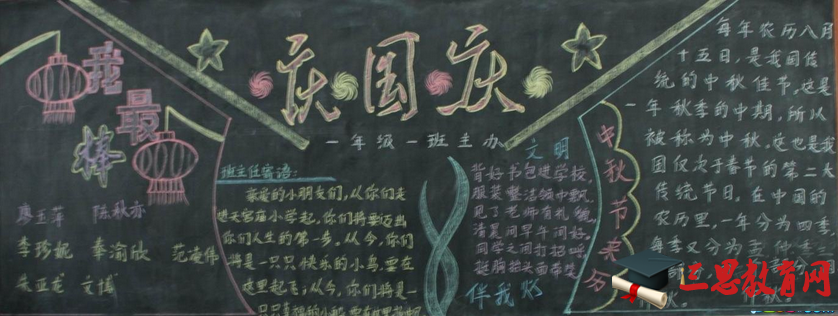 我最棒
廖玉萍 陈秋亦
李珍妮 秦渝欣 范凌伟
朱亚龙 文博
庆国庆
一年级一班主办
班主任寄语:
亲爱的小朋友们,从你们走
进天宫殿小学起,你们将要迈出
你们人生的第一步。从今,你们
将是一只只快乐的小鸟,要在
这里起飞;从今,你们将是一
文明
背好书包进学校
服装整洁领巾飘
见了老师有礼貌
清晨问早午问好
同学之间打招呼
挺胸抬头面带笑
伴我行
中秋节来历
每年农历八月
十五日,是我国传
统的中秋佳节。这是
一年秋季的中期,所以
被称为中秋。这也是我
国仅次于春节的第二大
传统节日。在中国的
农历里,一年分为四季
每季又分为孟 仲 季三
三思教育网